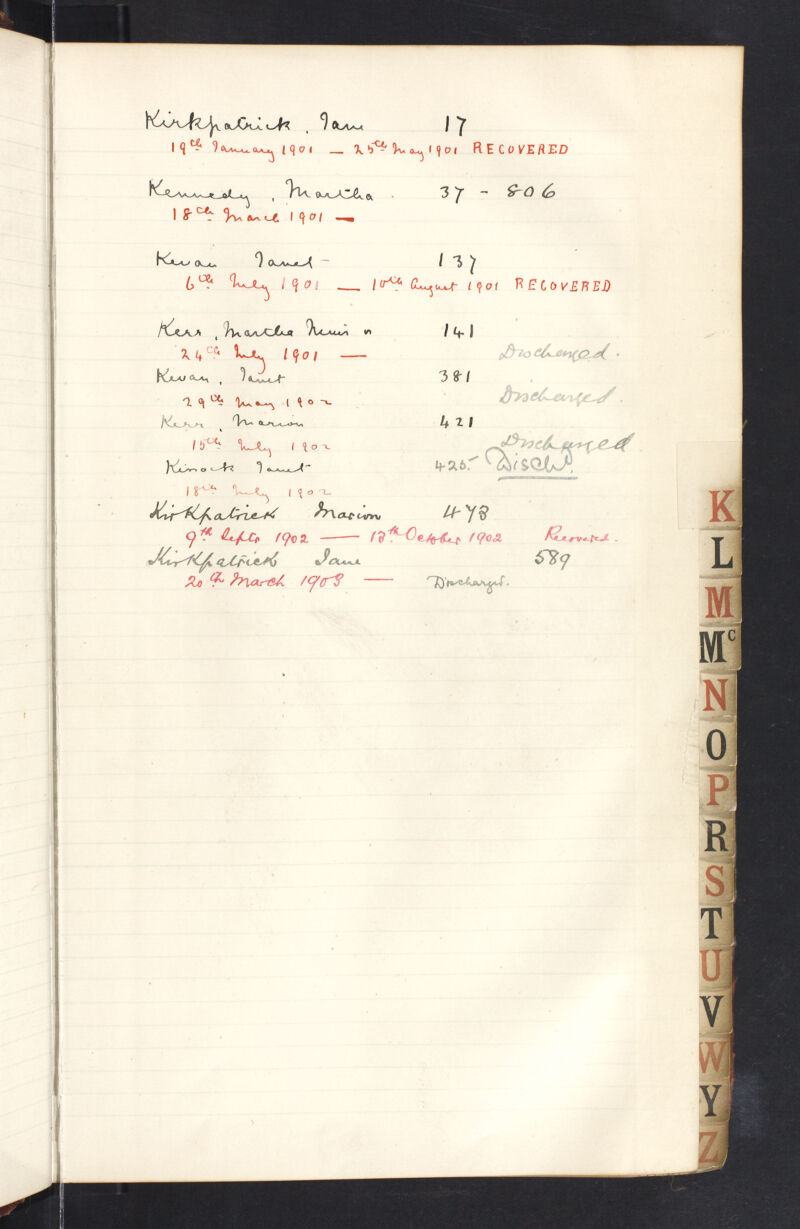 Kirkpatrick, Jane 17
19th January 1901 — 25th May 1901 RECOVERED
Kennedy, Martha. 37 - 806
18th March 1901 —
Kevan Janet - 137
6th July 1901 — 10th August 1901 RECOVERED
Kerr, Martha 141
24th July 1901 — Discharged.
Kevan, Janet 381
29th May 1902 Discharged.
Kerr, Marion 421
15th July 1902 Discharged
Janet 425- Dischd.
18th July 1902
Kirkpatrick Marion 473
9th Septr 1902 — 13th October 1902 Recovered.
Kirkpatrick Jane 589
20th March 1903 — Discharged.
K
L
M
Mc
N
O
P
R
S
T
U
V
W
Y
Z